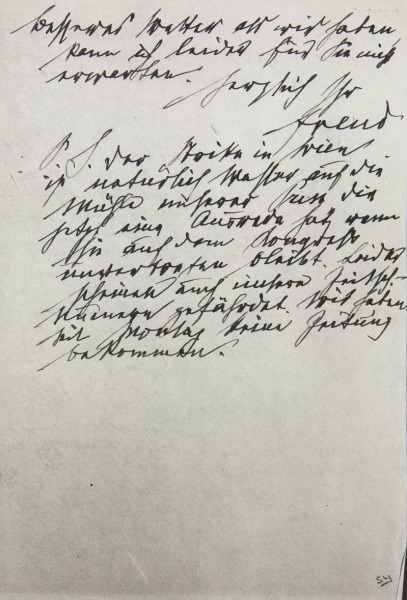 besseres Wetter als wir haben
kann ich leider für Sie nicht
erwarten.
Herzlich Ihr
Freud
P. S. Der Streik in Wien
ist natürlich Wasser auf die
Mühle unserer die
jetzt eine Ausrede hat wenn
Sie auf dem Kongress
unvertreten bleibt. Leider
scheinen auch unsere Zeitsch.
Nummern gefährdet. Wir haben
seit Montag keine Zeitung
bekommen.